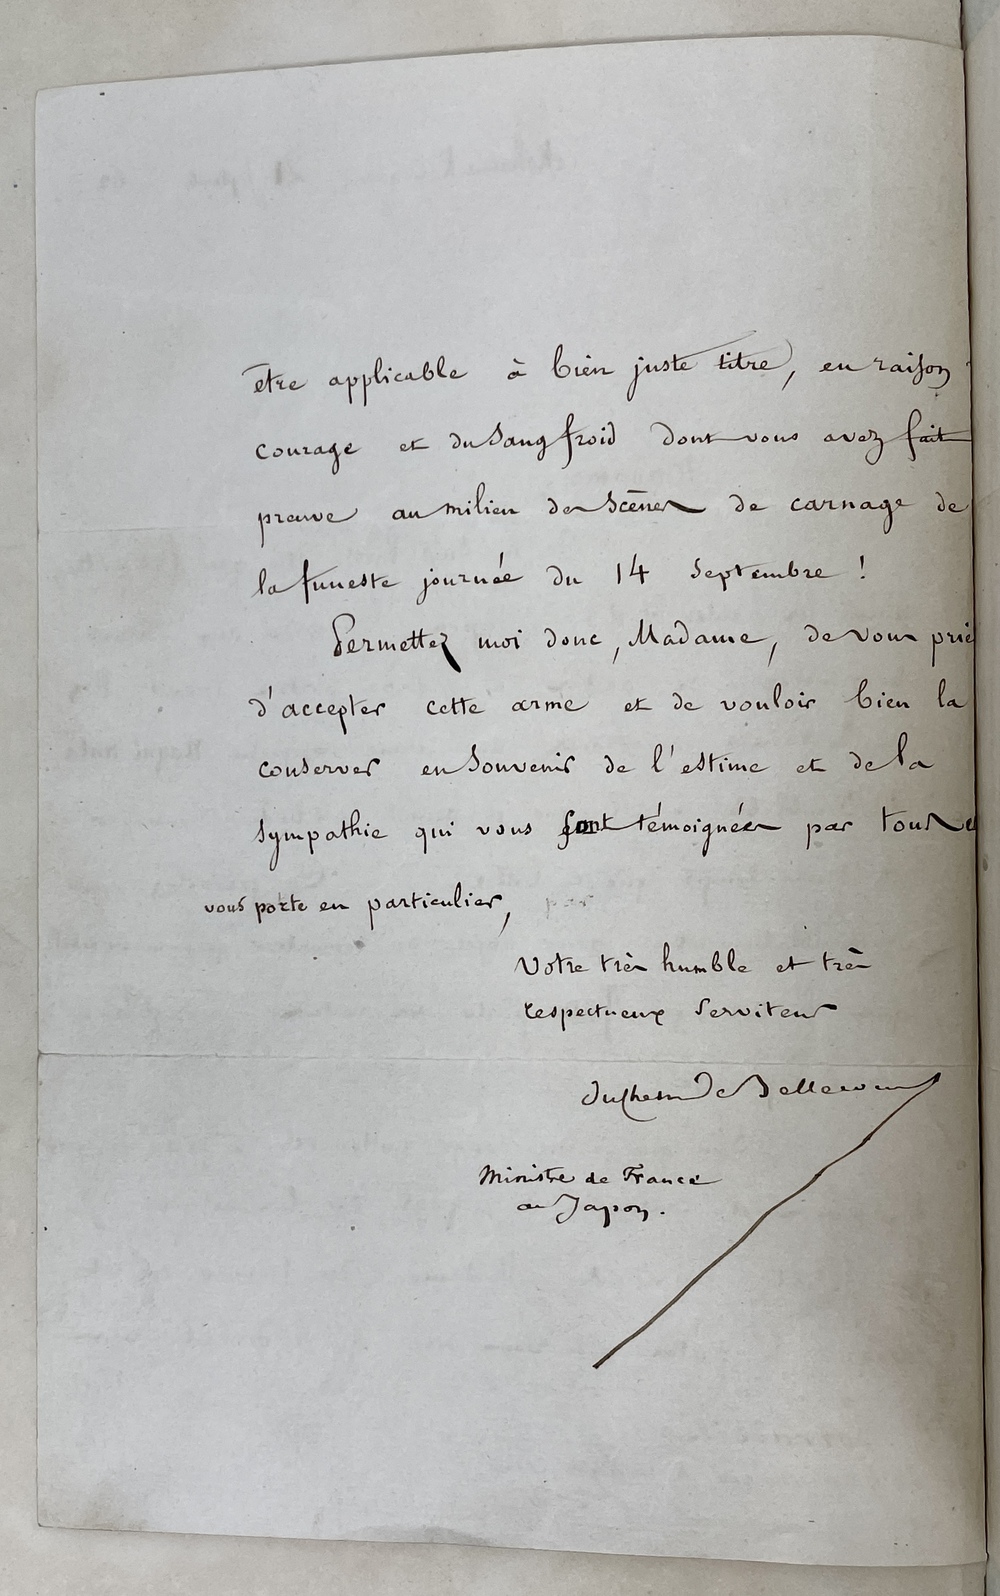 être applicable à bien juste titre, en raison
courage et du Sang froid dont vous avez fait
preuve au milieu des Scènes de carnage de
la funeste journée du 14 Septembre !
Permettez moi donc, Madame, de vous prie
d'accepter cette arme et de vouloir bien la
conserver en Souvenir de l'estime et de la
Sympathie qui vous sont témoignées par tous
vous porte en particulier,
Votre très humble et très
respectueux Serviteur
duchesne De Bellecourt
Ministre de France
au Japon.